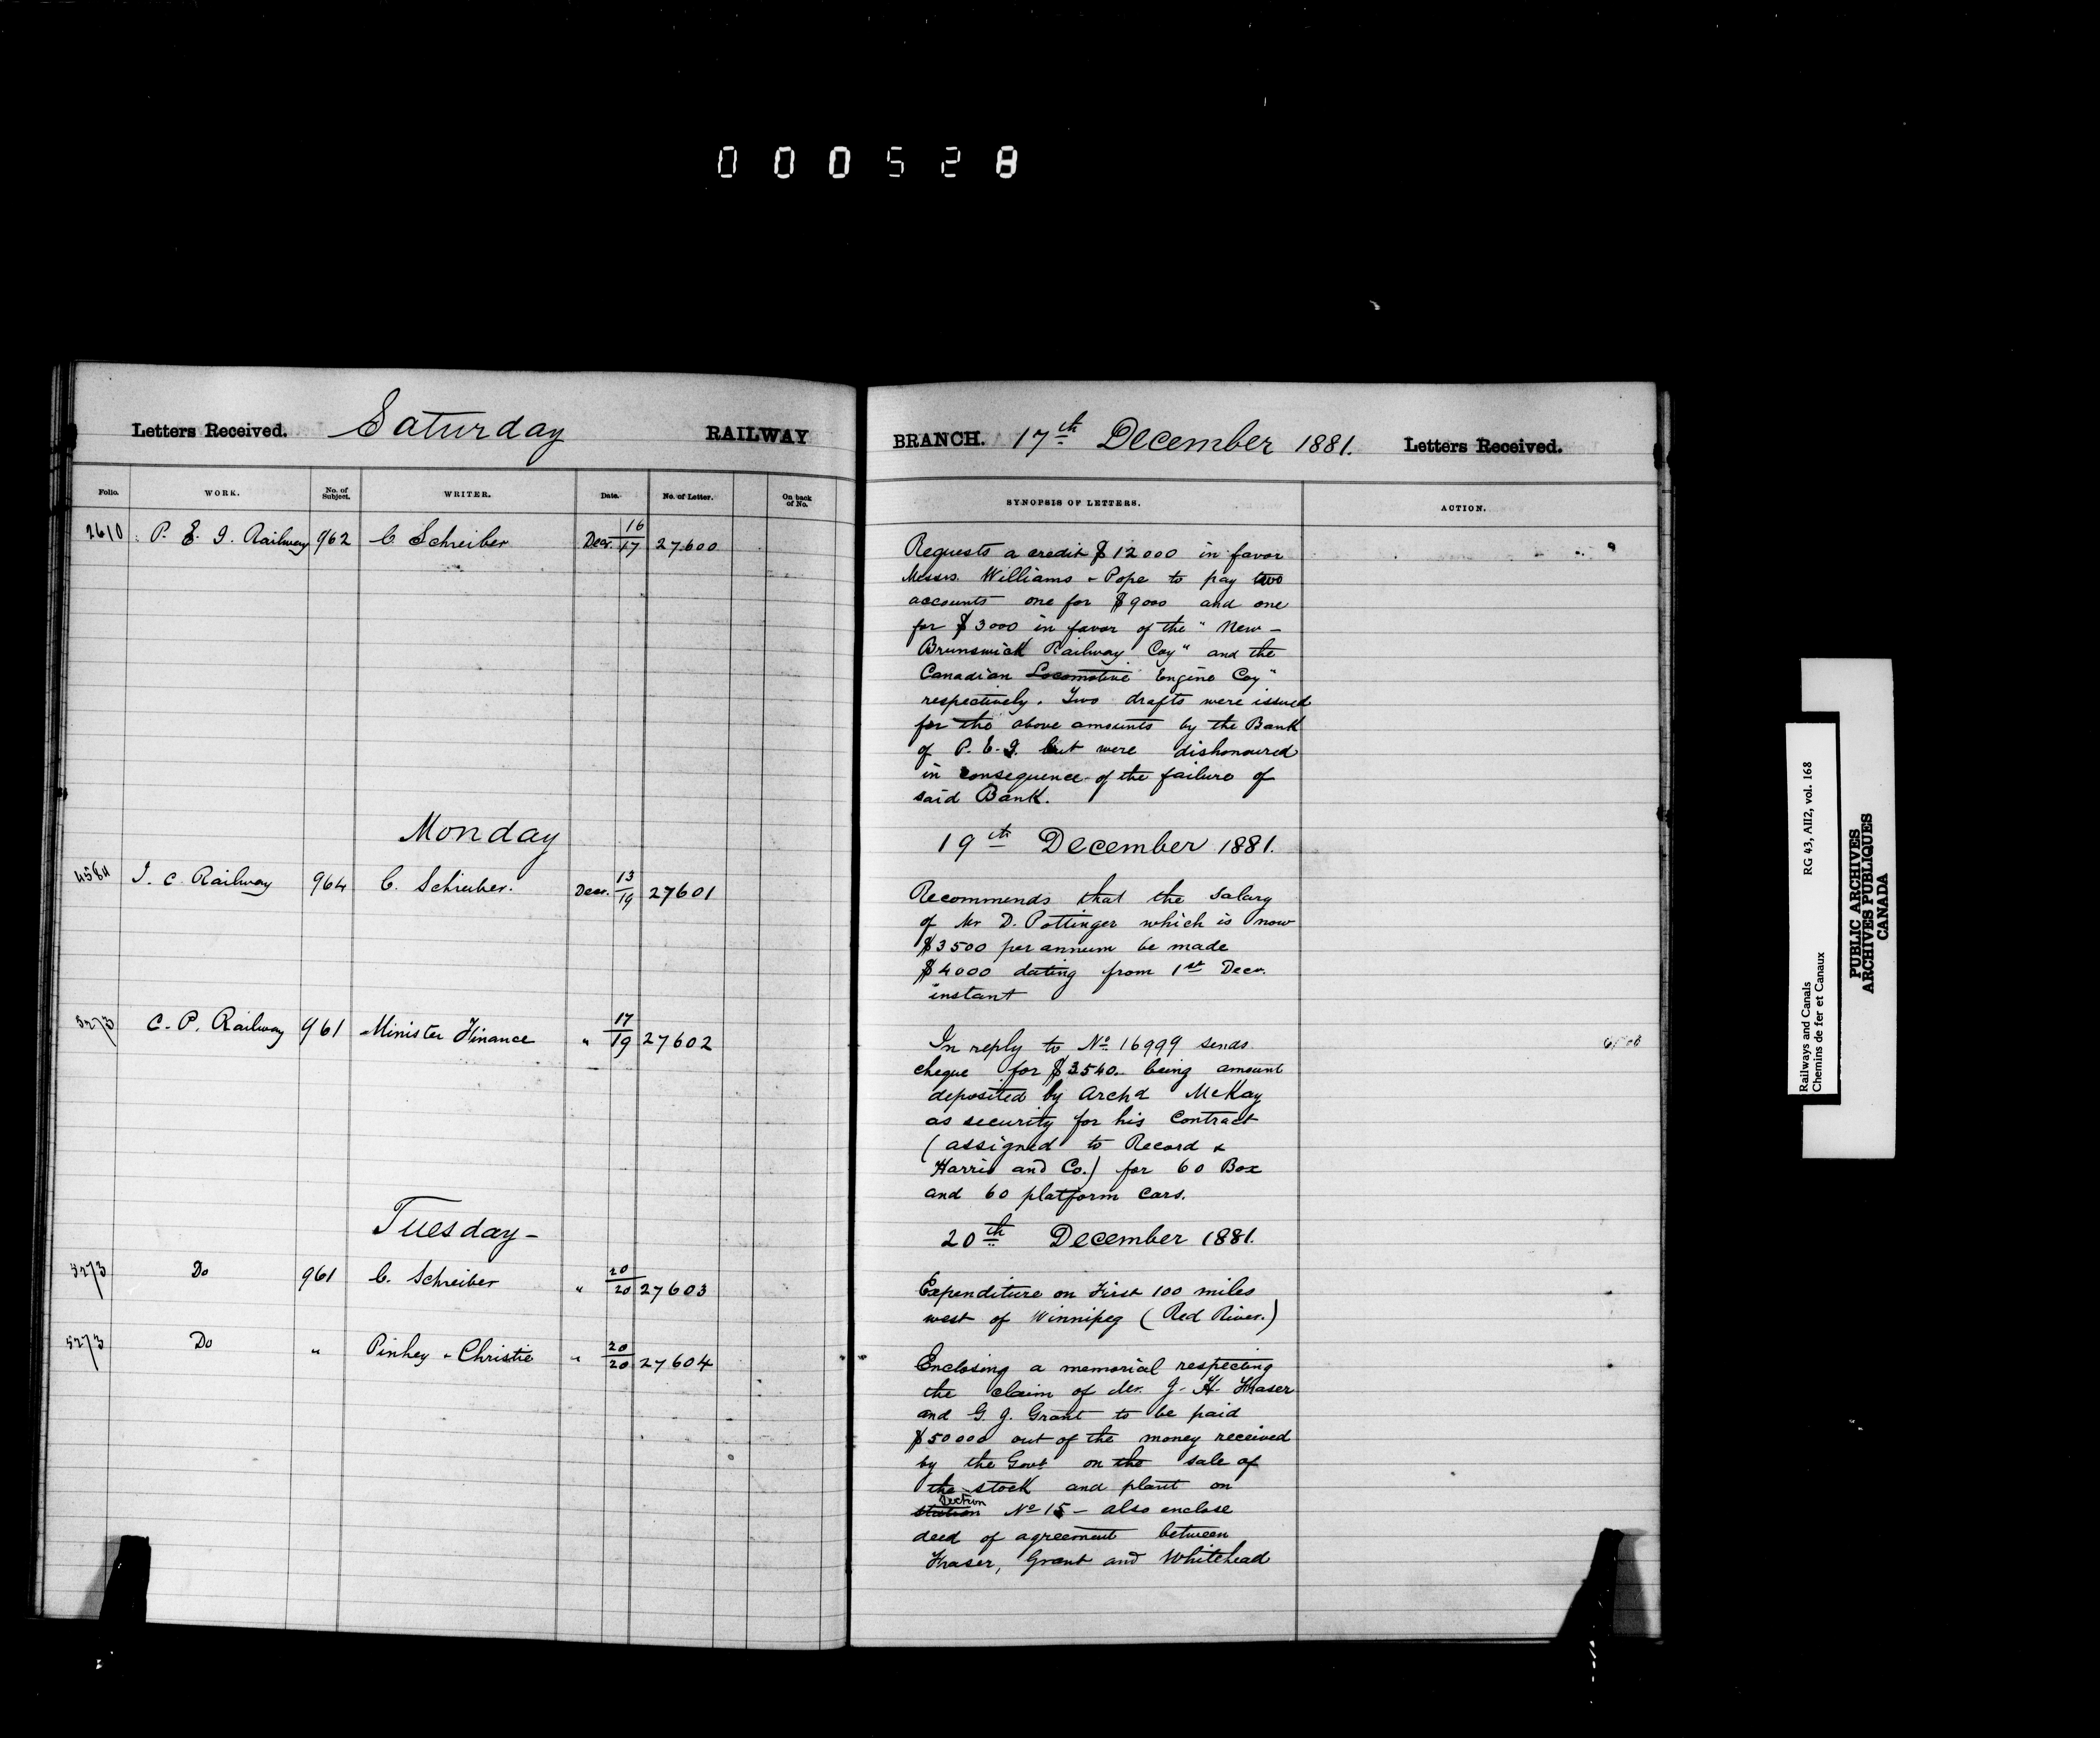 000528
Letters Received. Saturday RAILWAY BRANCH. 17th December 1881. Letters Received.
Folio. WORK. No. of Subject. WRITER. Date. No. of Letter. On back of No. SYNOPSIS OF LETTERS. ACTION.
2610 P. E. I. Railway 962 C. Schreiber Decr. 16/17 27600
Requests a credit $12000 in favor
Messrs. Williams & Pope to pay two
accounts one for $9000 and one
for $3000 in favor of the "New-
Brunswick Railway Coy" and the
Canadian Locomotive Engine Coy"
respectively. Two drafts were issued
for the above amounts by the Bank
of P. E. I. but were dishonoured
in consequence of the failure of
said Bank.
Monday 19th December 1881.
4584 I. C. Railway 964 C. Schreiber. Decr. 13/19 27601
Recommends that the salary
of Mr D. Pottinger which is now
$3500 per annum be made
$4000 dating from 1st Decr.
instant
5273 C. P. Railway 961 Minister Finance " 17/19 27602
In reply to No. 16999 sends
cheque for $3540. being amount
deposited by Archd McKay
as security for his contract
(assigned to Record &
Harris and Co.) for 60 Box
and 60 platform cars.
Tuesday- 20th December 1881.
5273 Do 961 C. Schreiber " 20/20 27603
Expenditure on First 100 miles
west of Winnipeg (Red River.)
5273 Do " Pinhey & Christie " 20/20 27604
Enclosing a memorial respecting
the claim of Mr. J. H. Fraser
and G. J. Grant to be paid
$50000 out of the money received
by the Govt on the sale of
the stock and plant on
station Section No 15 - also enclose
deed of agreement between
Fraser, Grant and Whitehead
Railways and Canals RG 43, AII2, vol. 168
Chemins de fer et Canaux
PUBLIC ARCHIVES
ARCHIVES PUBLIQUES
CANADA